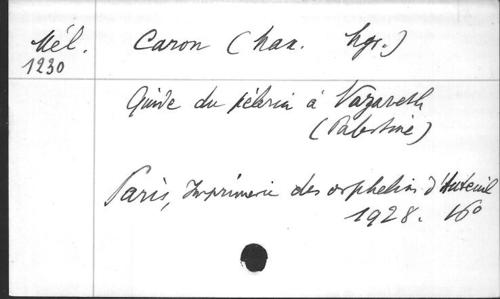 Mél. Caron (Max. Mgr.)
1230
Guide du pèlerin à Nazareth
(Palestine)
Paris, Imprimerie des orphelins d'Auteuil
1928. 16°